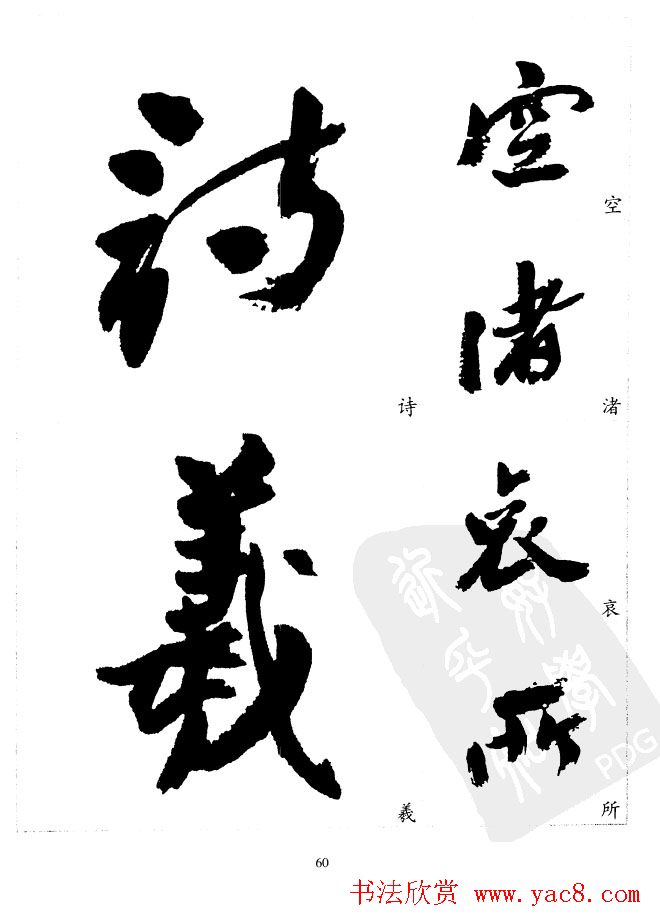 空渚哀所
空
渚
哀
所
詩羲
诗
羲
PDG
60
书法欣赏 www.yac8.com